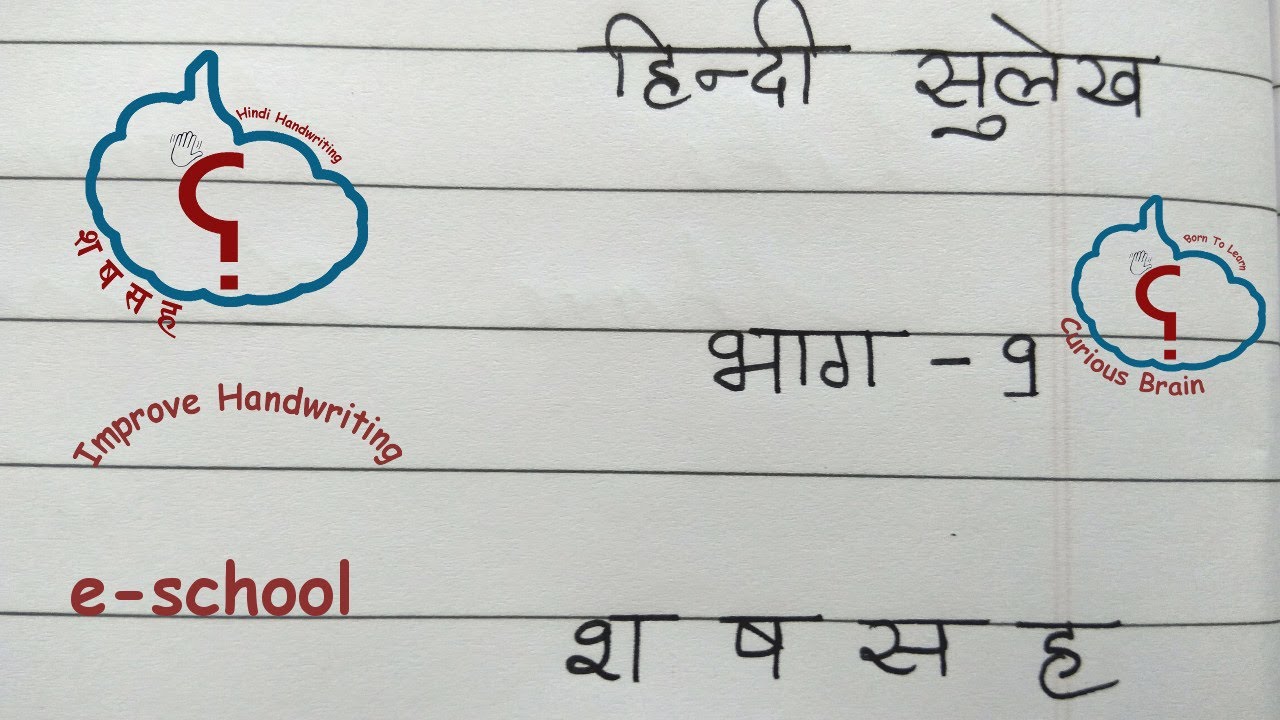 हिन्दी सुलेख
Hindi Handwriting
श ष स ह
Born To Learn
Curious Brain
भाग - १
Improve Handwriting
e-school
श ष स ह